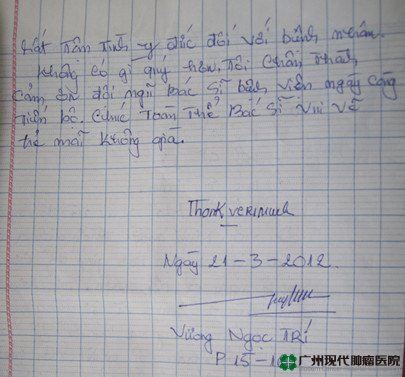 rất tận tình y đức đối với bệnh nhân.
Không có gì quý hơn, tôi chân thành
cảm ơn đội ngũ bác sĩ bệnh viện ngày càng
tiến bộ. Chúc toàn thể Bác sĩ vui vẻ
trẻ mãi không già.
Thank verimuch
Ngày 21-3-2012.
Vương Ngọc TRÍ
P 15-1
广州现代肿瘤医院